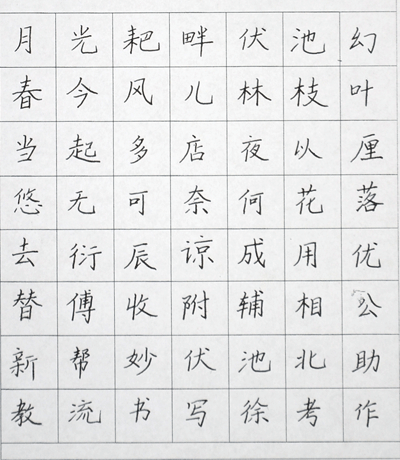 月光耙畔伏池幻
春今风儿林枝叶
当起多店夜以厘
悠无可奈何花落
去衍辰谅成用优
替傅收附辅相公
新帮妙伏池北助
教流书写徐考作